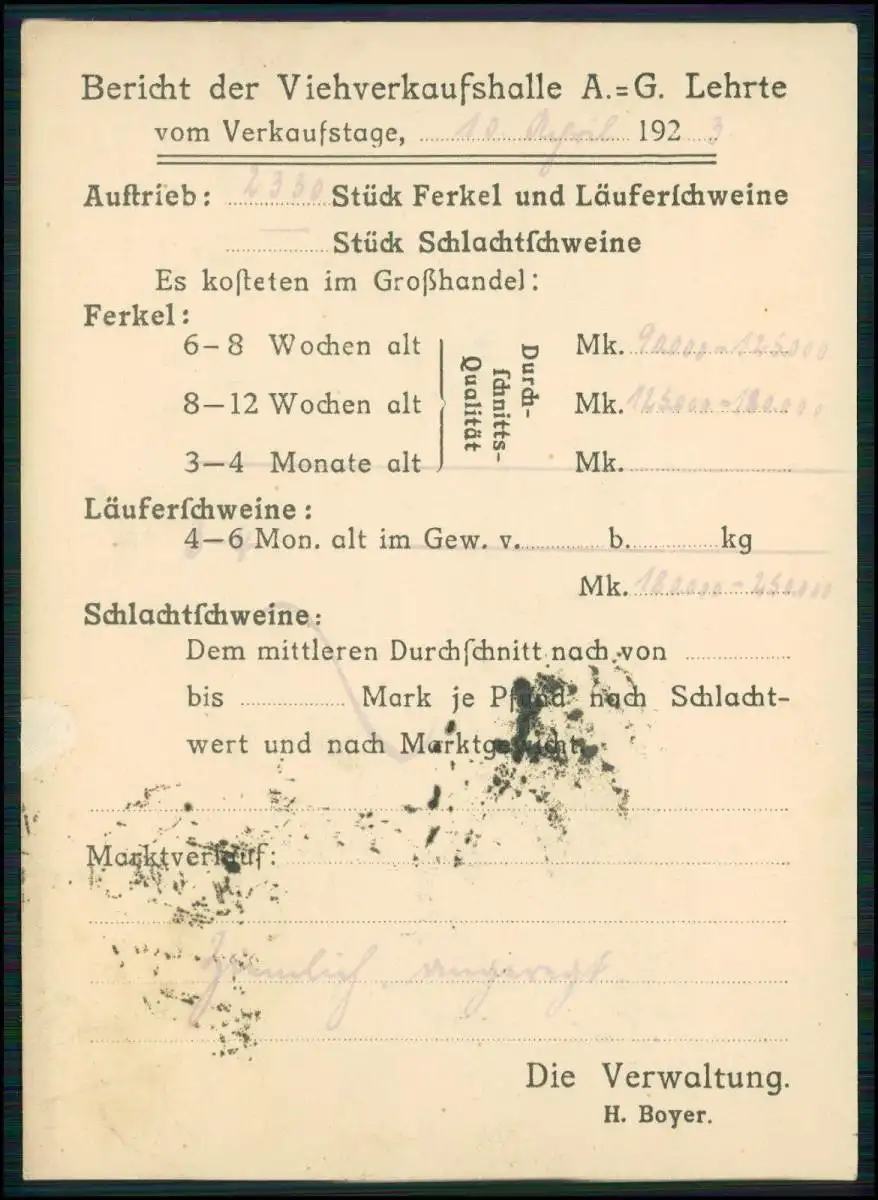 Bericht der Viehverkaufshalle A.=G. Lehrte
vom Verkaufstage, 10 April 1923
Auftrieb: 2330 Stück Ferkel und Läuferschweine
— Stück Schlachtschweine
Es kosteten im Großhandel:
Ferkel:
6–8 Wochen alt Mk. 90000–125000
8–12 Wochen alt Mk. 125000–180000
3–4 Monate alt Mk.
Durch-
schnitts-
Qualität
Läuferschweine:
4–6 Mon. alt im Gew. v. b. kg
Mk. 180000–250000
Schlachtschweine:
Dem mittleren Durchschnitt nach von
bis Mark je Pfund nach Schlacht-
wert und nach Marktgewicht.
Marktverlauf:
Ziemlich angeregt
Die Verwaltung.
H. Boyer.